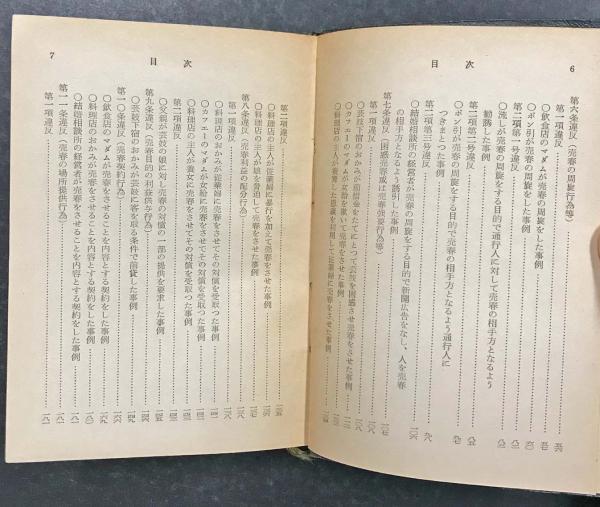 6
目次
第六条違反（売春の周旋行為等）
第一項違反
○飲食店のマダムが売春の周旋をした事例
○ポン引が売春の周旋をした事例
第二項第一号違反
○流しが売春の周旋をする目的で通行人に対して売春の相手方となるよう
勧誘した事例
第二項第二号違反
○ポン引が売春の周旋をする目的で売春の相手方となるよう通行人に
つきまとつた事例
第二項第三号違反
○結婚相談所の経営者が売春の周旋をする目的で新聞広告をなし、人を売春
の相手方となるよう誘引した事例
第七条違反（困惑売春或は売春強要行為等）
第一項違反
○芸妓下宿のおかみが前借金をたてにとつて芸妓を困惑させ売春をさせた事例
○カフエーのマダムが女給を欺いて売春をさせた事例
○料理店の主人が養育した恩義を利用して従業婦に売春をさせた事例
7
目次
第二項違反
○料理店の主人が従業婦に暴行を加えて売春をさせた事例
○料理店の主人が娘を脅迫して売春をさせた事例
第八条違反（売春利益の配分行為）
第一項違反
○料理店のおかみが従業婦に売春をさせてその対償を受取つた事例
○カフエーのマダムが女給に売春をさせてその対償を受取つた事例
○料理店の主人が養女に売春をさせてその対償を受取つた事例
第二項違反
○父親が芸妓の娘に対し売春の対償の一部の提供を要求した事例
第九条違反（売春目的の利益供与行為）
○芸妓下宿のおかみが芸妓に客を取る条件で前貸した事例
第一〇条違反（売春契約行為）
○飲食店のマダムが売春をさせることを内容とする契約をした事例
○料理店のおかみが売春をさせることを内容とする契約をした事例
○結婚相談所の経営者が売春をさせることを内容とする契約をした事例
第一一条違反（売春の場所提供行為）
第一項違反